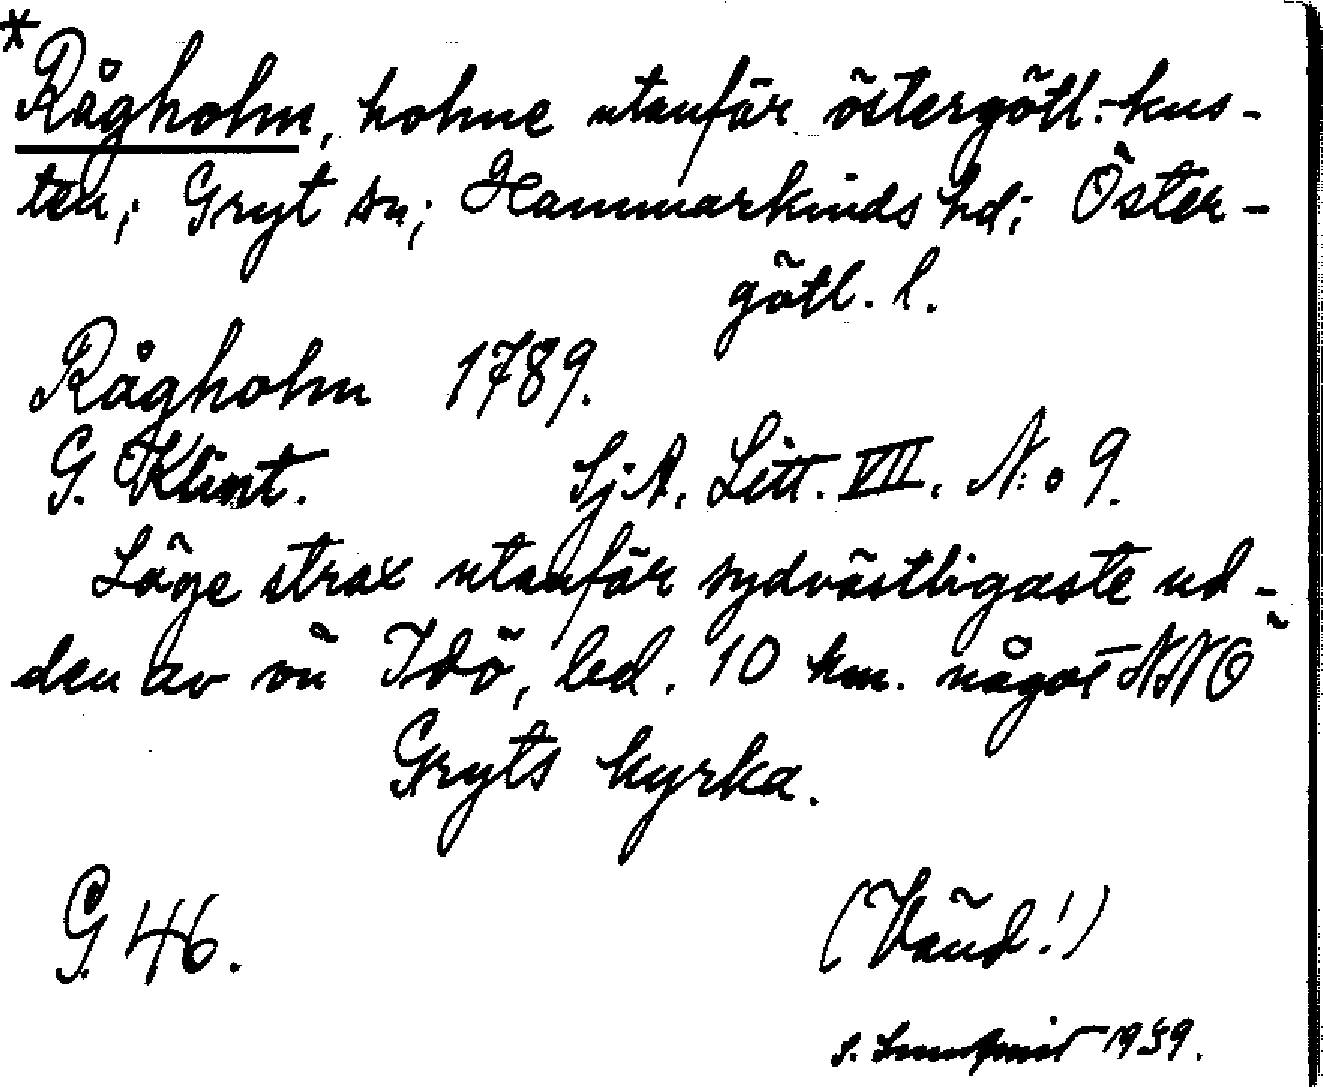 *
Rågholm, holme utanför östergötl.-kus-
ten; Gryt sn; Hammarkinds hd; Öster-
götl. l.
Rågholm 1789.
G. Klint. Sj.A. Litt. VIII. N:o 9.
Läge strax utanför sydvästligaste ud-
den av ön Idö, bel. 10 km. något NNO
Gryts kyrka.
G. 46. (Vänd!)
S. 1939.